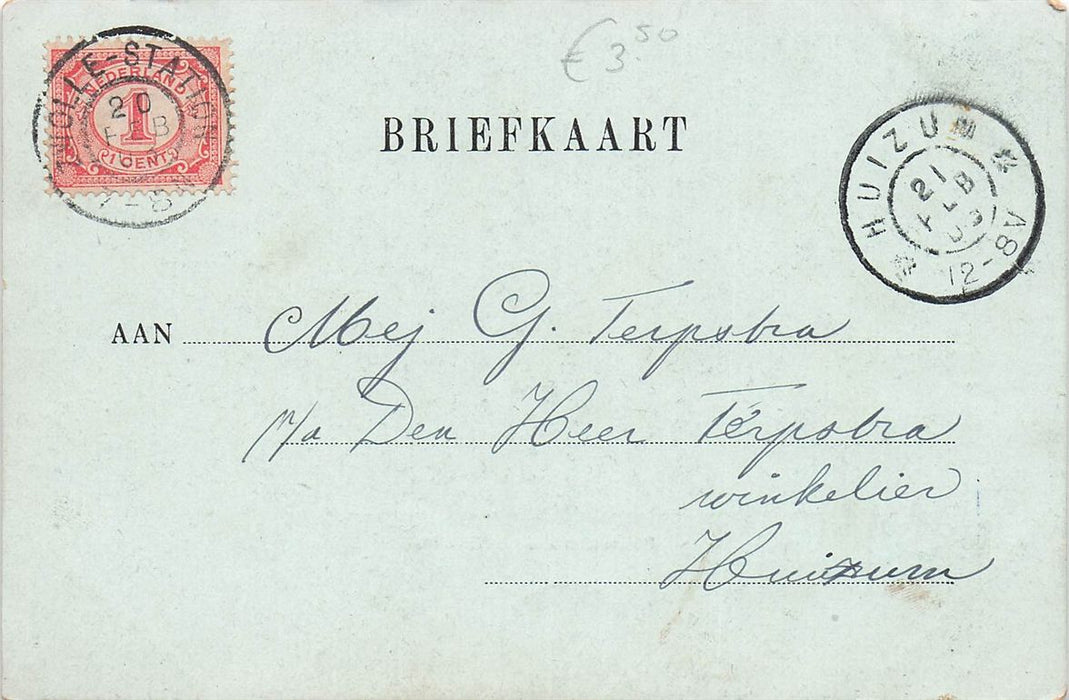 € 3.50
ZWOLLE-STATION
20
FEB
7-8N
NEDERLAND
1
(1 CENT)
BRIEFKAART
* HUIZUM *
21
FEB
03
12-8A
AAN Mej G. Terpstra
p/a Den Heer Terpstra
winkelier
Huizum